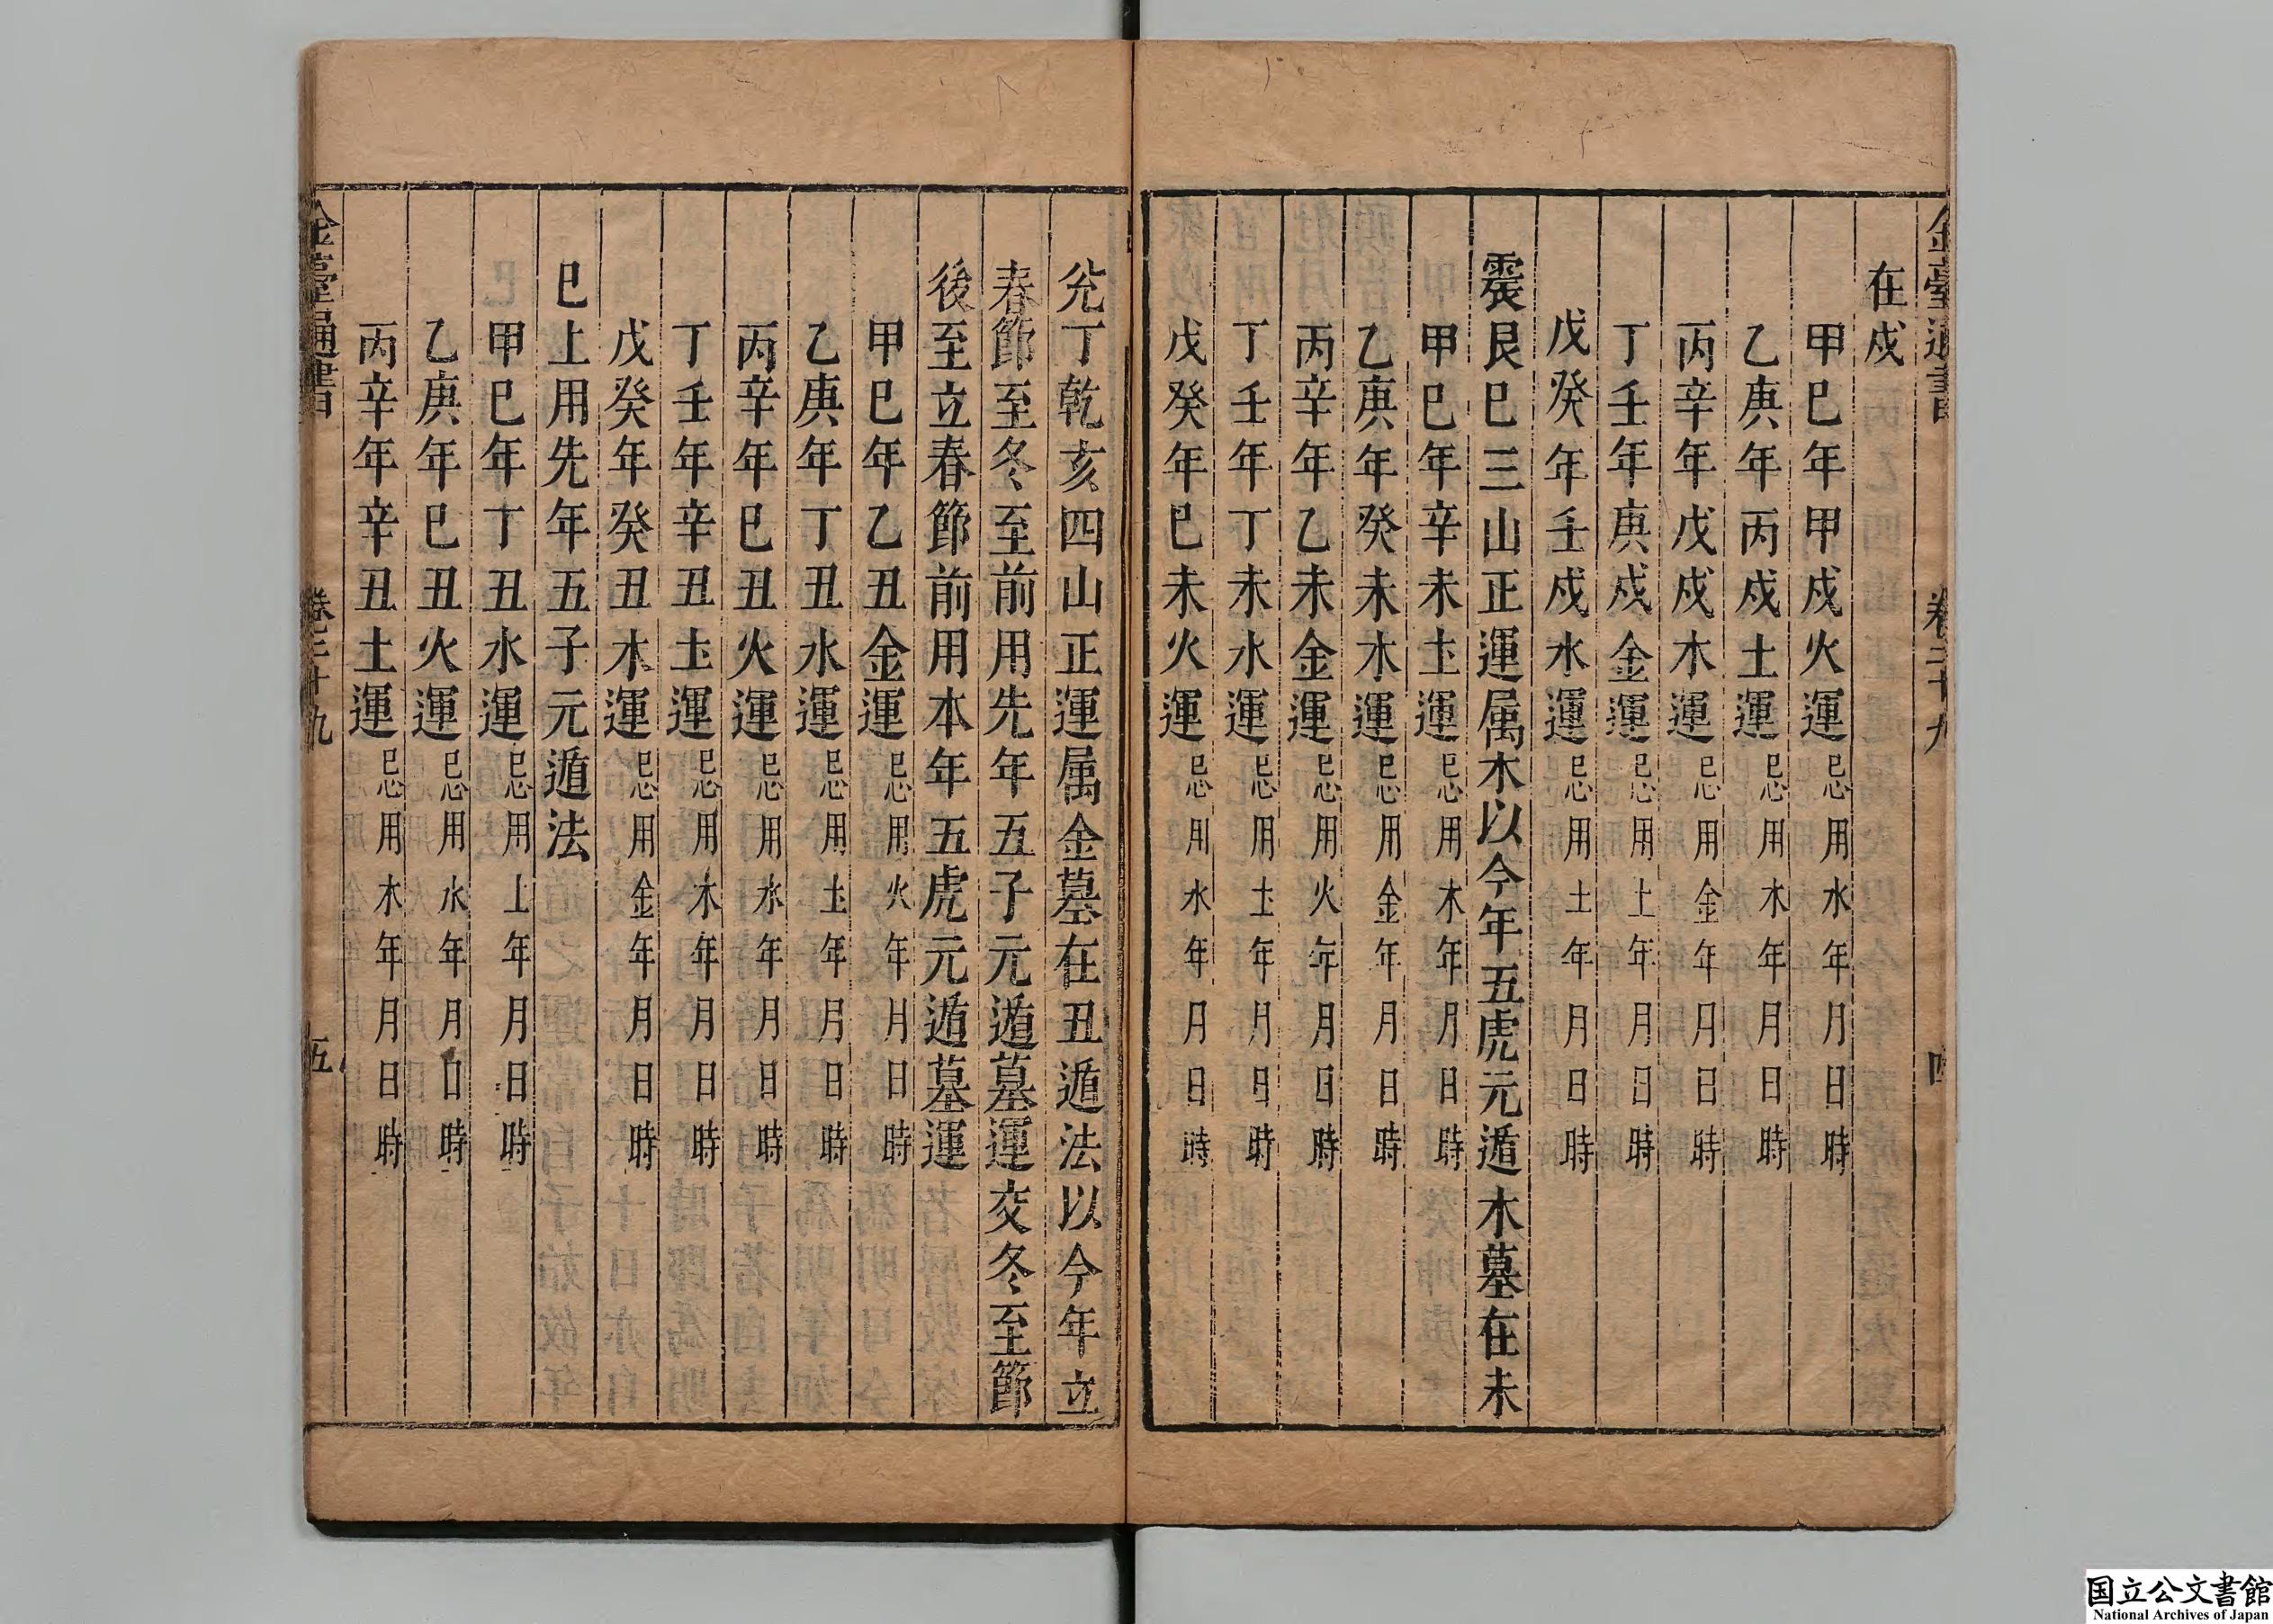 金臺通書 卷二十九 四
在戌
甲巳年甲戌火運忌用水年月日時
乙庚年丙戌土運忌用木年月日時
丙辛年戊戌木運忌用金年月日時
丁壬年庚戌金運忌用上年月日時
戊癸年壬戌水運忌用土年月日時
震艮巳三山正運属木以今年五虎元遁木墓在未
甲巳年辛未土運忌用木年月日時
乙庚年癸未木運忌用金年月日時
丙辛年乙未金運忌用火年月日時
丁壬年丁未水運忌用土年月日時
戊癸年巳未火運忌用水年月日時
兊丁乾亥四山正運属金墓在丑遁法以今年立
春節至冬至前用先年五子元遁墓運交冬至節
後至立春節前用本年五虎元遁墓運
甲巳年乙丑金運忌用火年月日時
乙庚年丁丑水運忌用土年月日時
丙辛年巳丑火運忌用水年月日時
丁壬年辛丑土運忌用木年月日時
戊癸年癸丑木運忌用金年月日時
巳上用先年五子元遁法
甲巳年丁丑水運忌用上年月日時
乙庚年巳丑火運忌用水年月日時
丙辛年辛丑土運忌用木年月日時
金臺通書 卷二十九 五
国立公文書館
National Archives of Japan